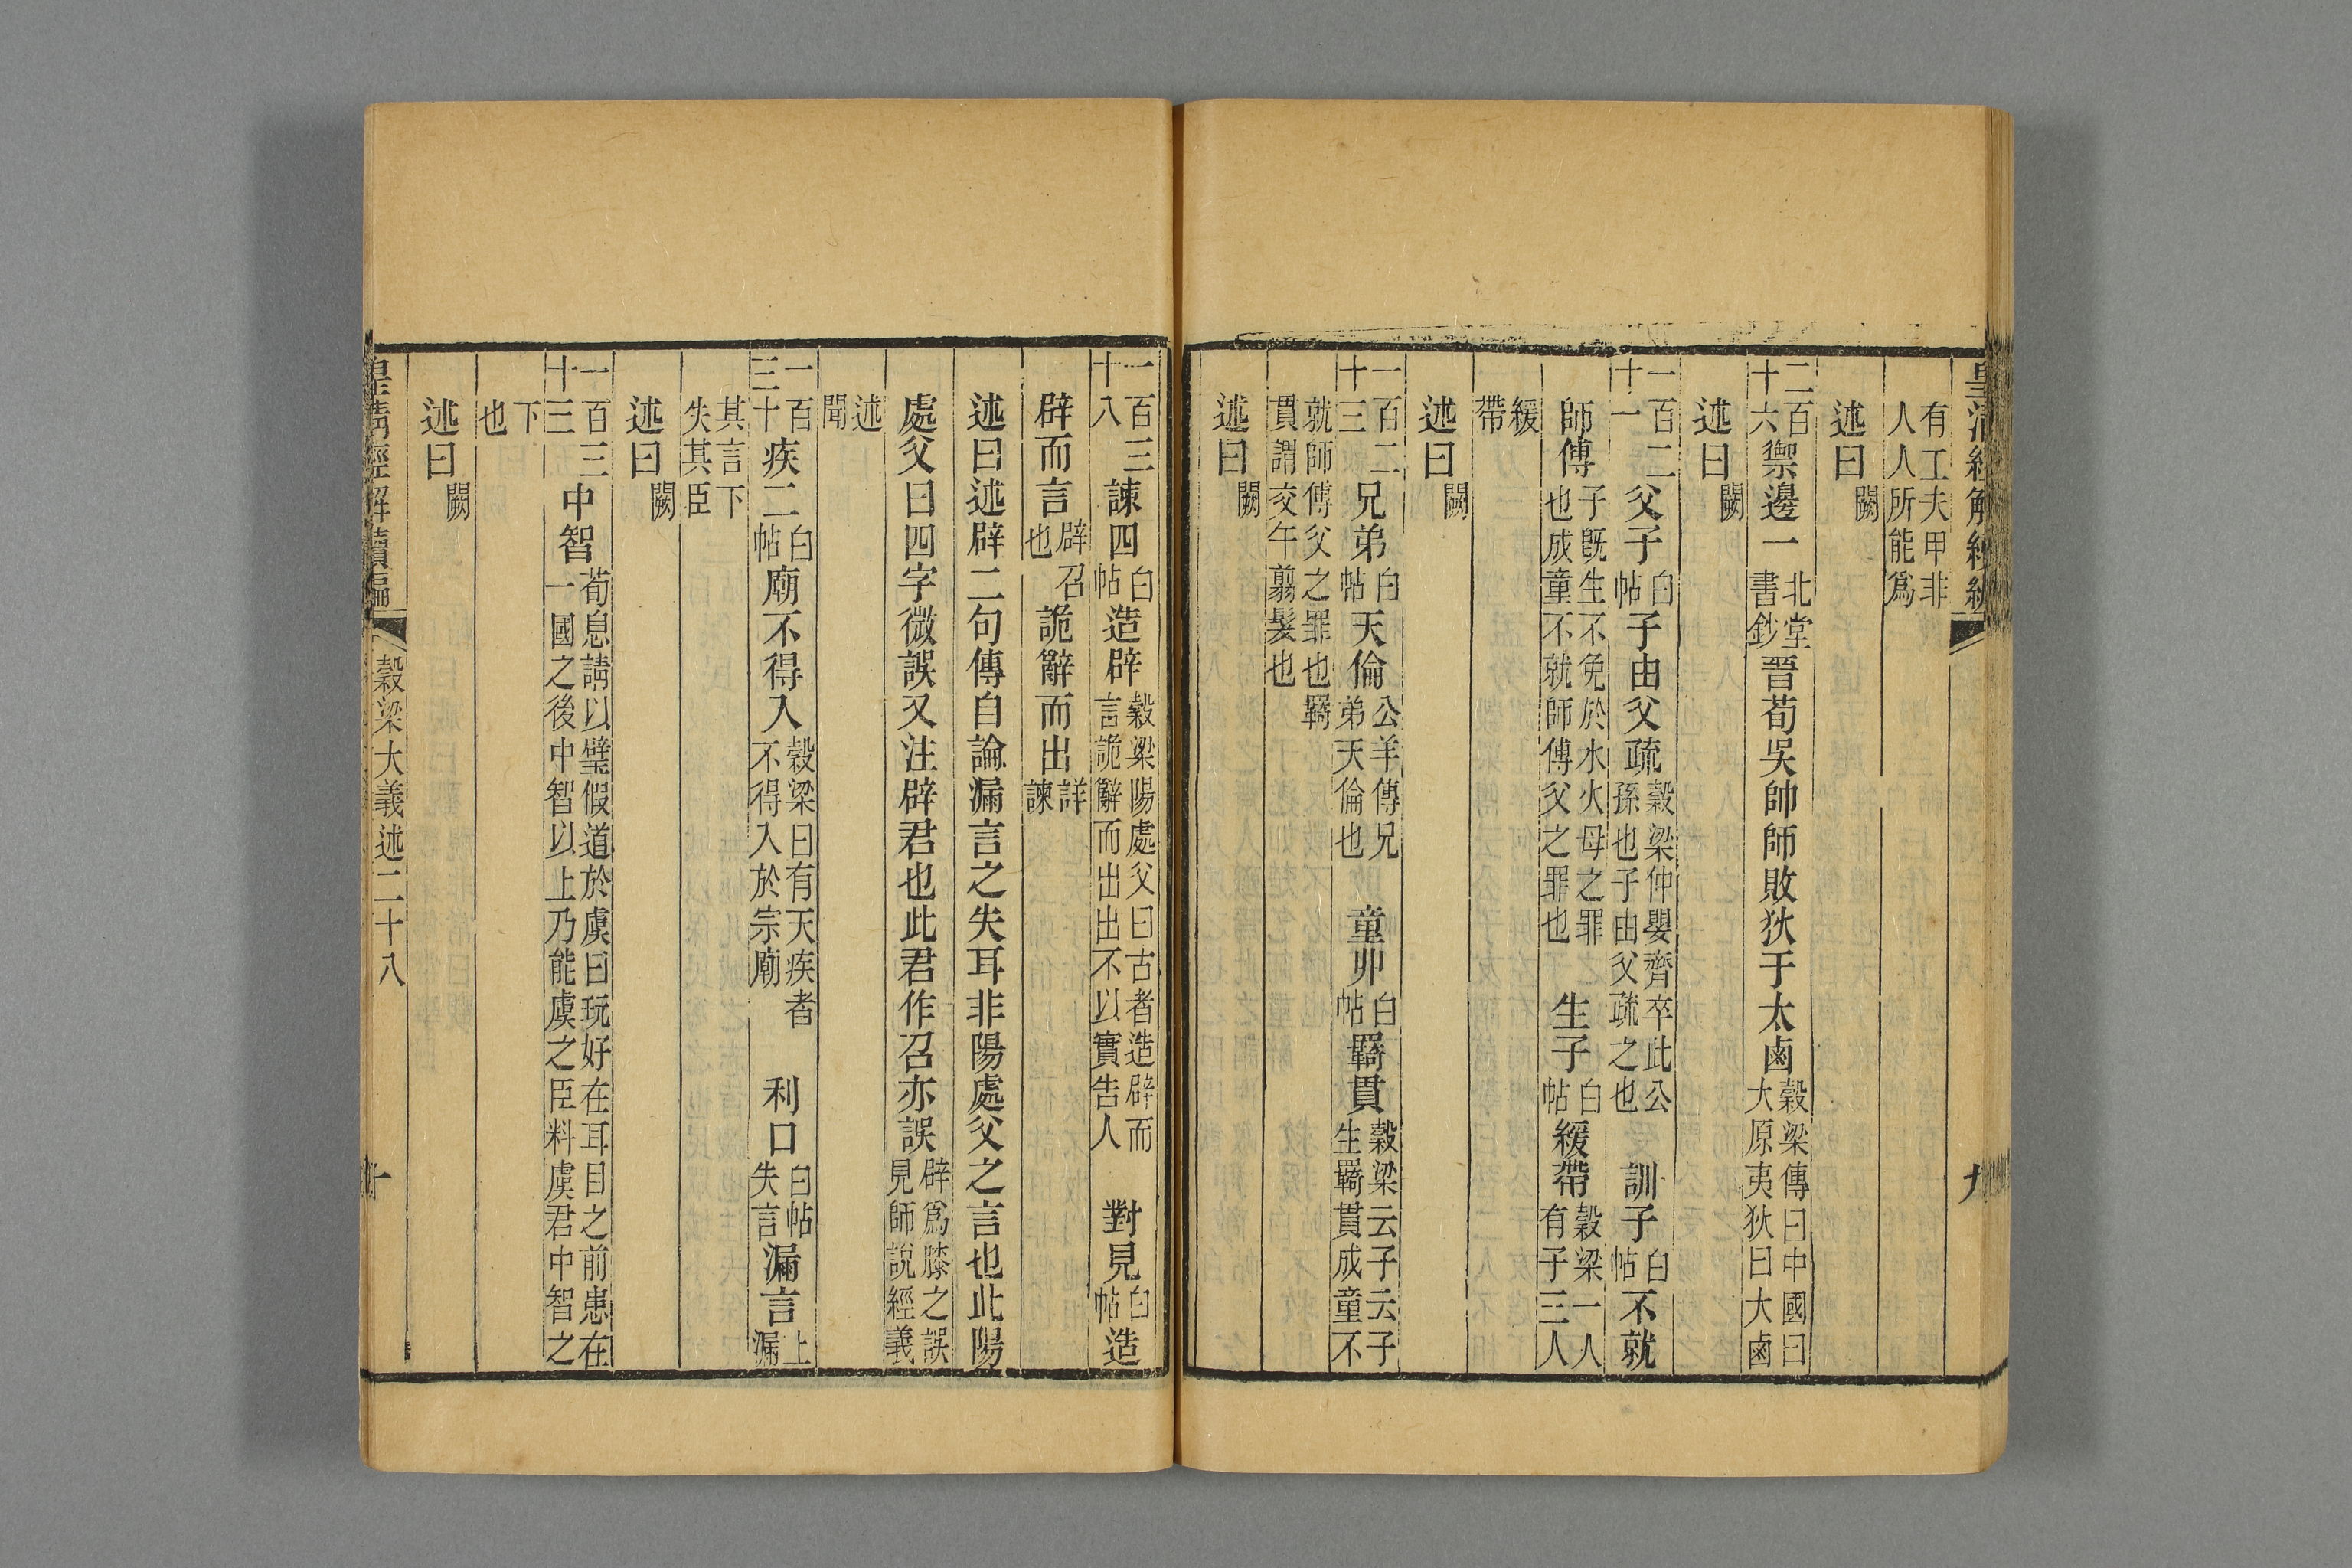 皇清經解續編 九
有工夫甲非人人所能爲
述曰闕
二百十六禦邊一北堂書鈔晉荀吳帥師敗狄于太鹵穀梁傳曰中國曰大原夷狄曰大鹵
述曰闕
一百二十一父子白帖子由父疏穀梁仲嬰齊卒此公孫也子由父疏之也 訓子白帖不就
師傅子既生不免於水火母之罪也成童不就師傅父之罪也 生子白帖緩帶穀梁一人有子三人
緩帶
述曰闕
一百二十三兄弟白帖天倫公羊傳兄弟天倫也 童丱白帖羈貫穀梁云子云子生羈貫成童不
就師傅父之罪也羈貫謂交午翦髮也
述曰闕
一百三十八諫四白帖造辟穀梁陽處父曰古者造辟而言詭辭而出出不以實告人 對見白帖造
辟而言辟召也詭辭而出詳諫
述曰述辟二句傳自論漏言之失耳非陽處父之言也此陽
處父曰四字微誤又注辟君也此君作召亦誤辟爲膝之誤見師說經義
述聞
一百三十三疾二白帖廟不得入穀梁曰有天疾者不得入於宗廟 利口白帖失言漏言上漏
其言下失其臣
述曰闕
一百三十三中智荀息請以璧假道於虞曰玩好在耳目之前患在一國之後中智以上乃能虞之臣料虞君中智之
下也
述曰闕
皇清經解續編 穀梁大義述二十八 十